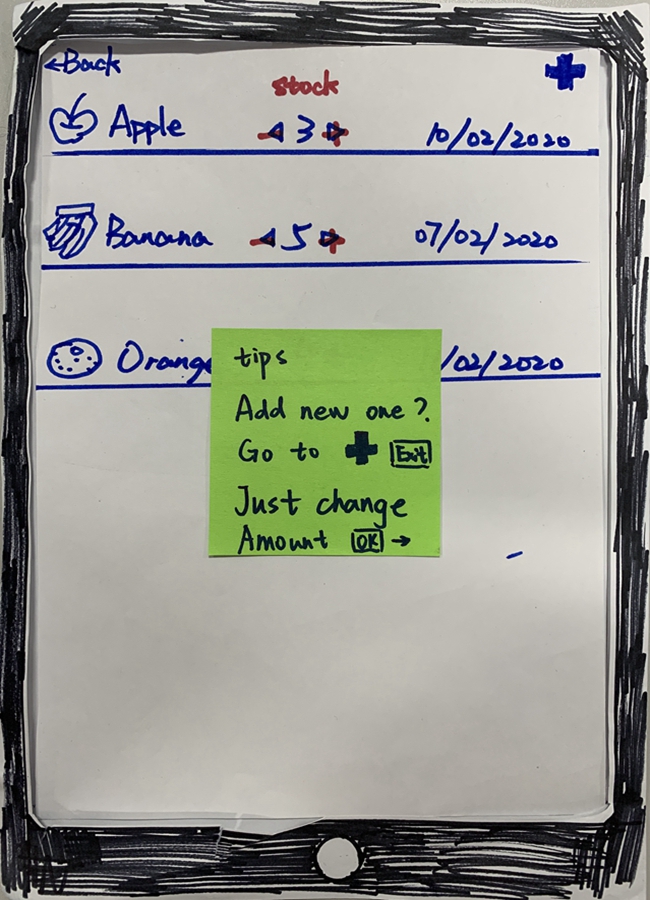 ←Back
stock
Apple 3 10/02/2020
Banana 5 07/02/2020
Orange /02/2020
tips
Add new one?
Go to + Exit
Just change
Amount OK →